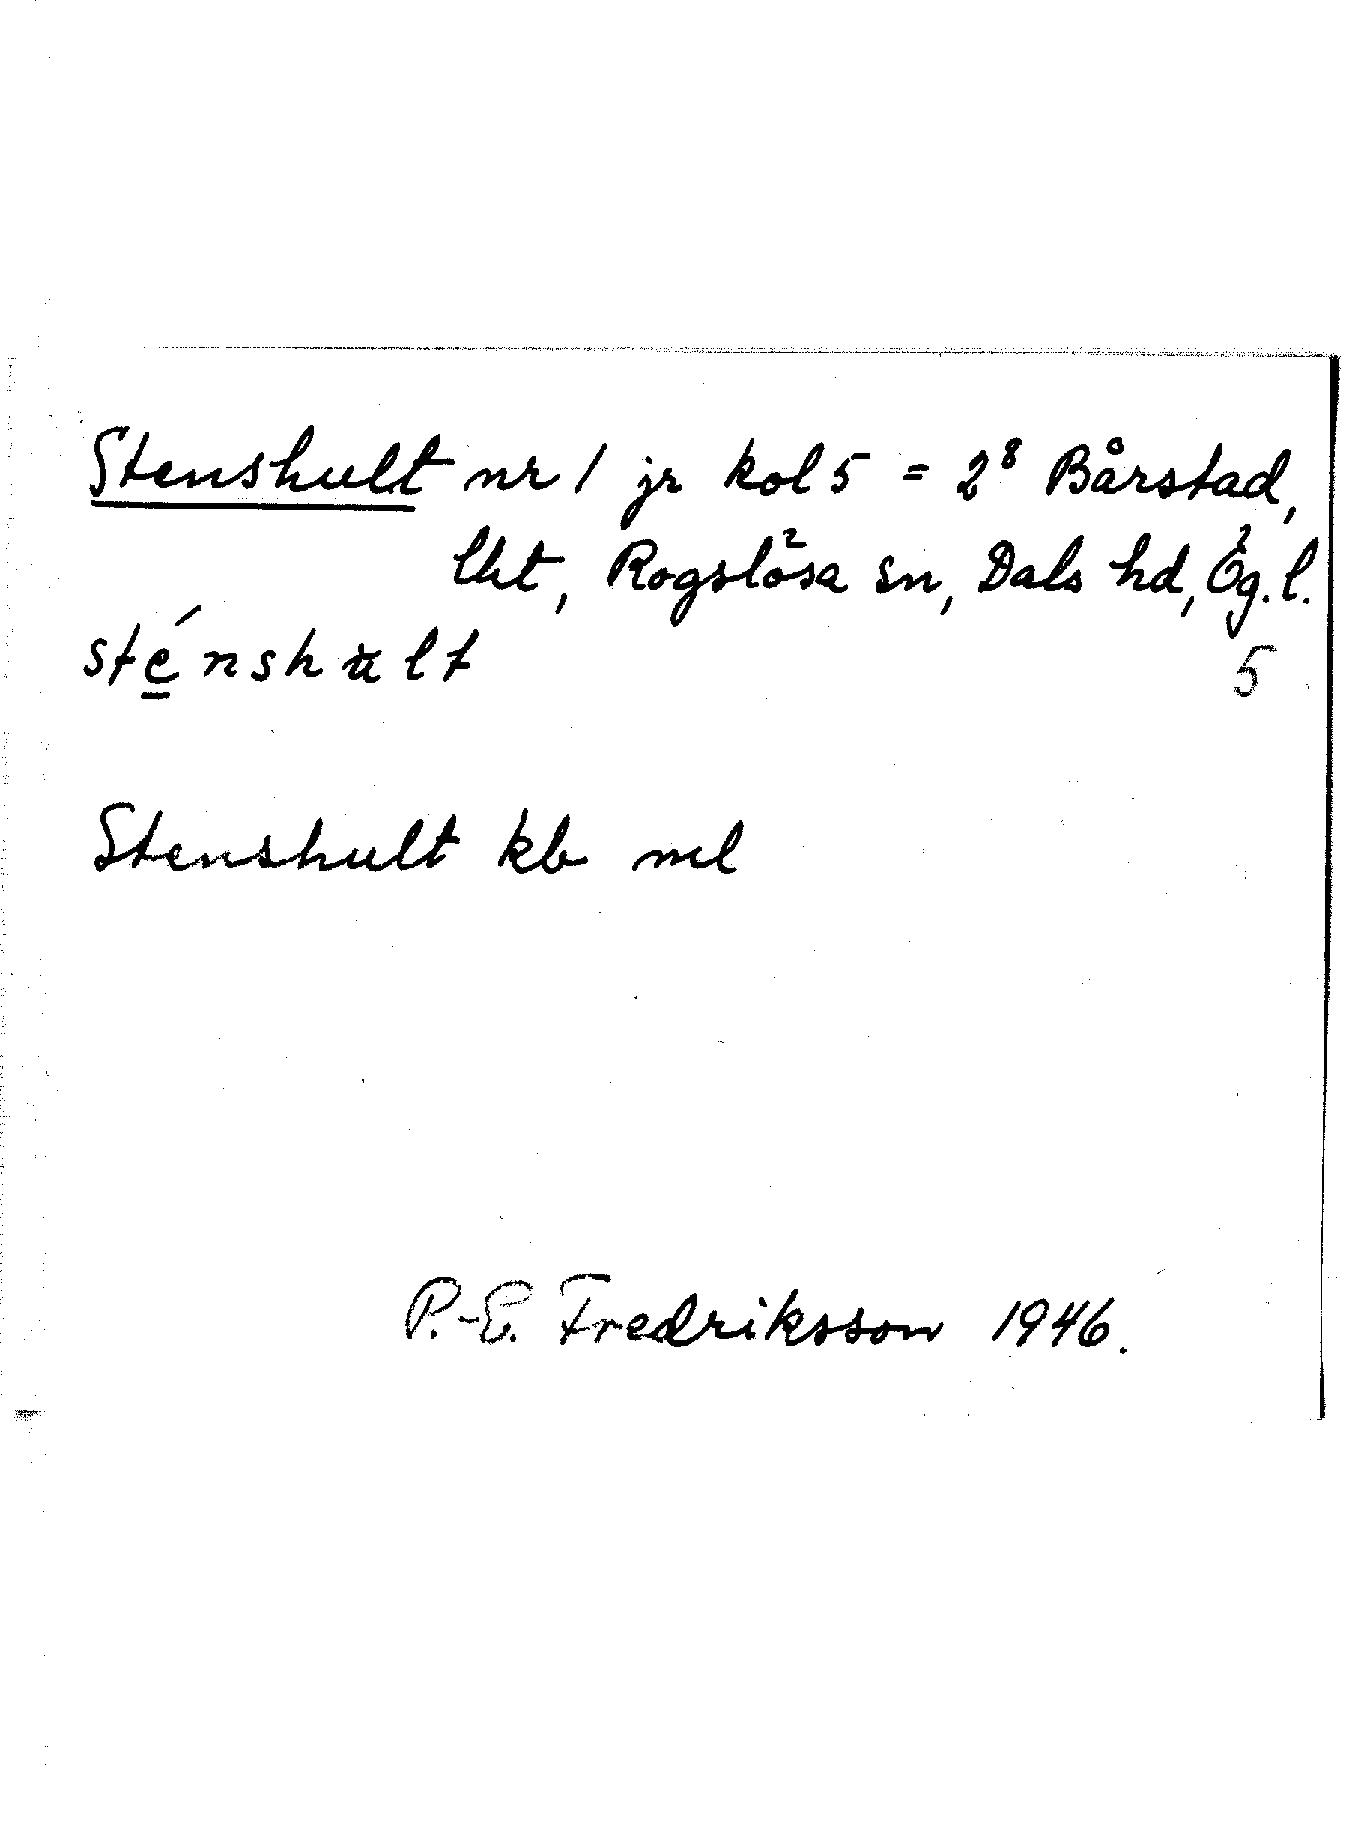 Stenshult nr 1 jr kol 5 = 2⁸ Bårstad,
lht, Rogslösa sn, Dals hd, Ög. l.
sténshult
5
Stenshult kb ml
P.-E. Fredriksson 1946.